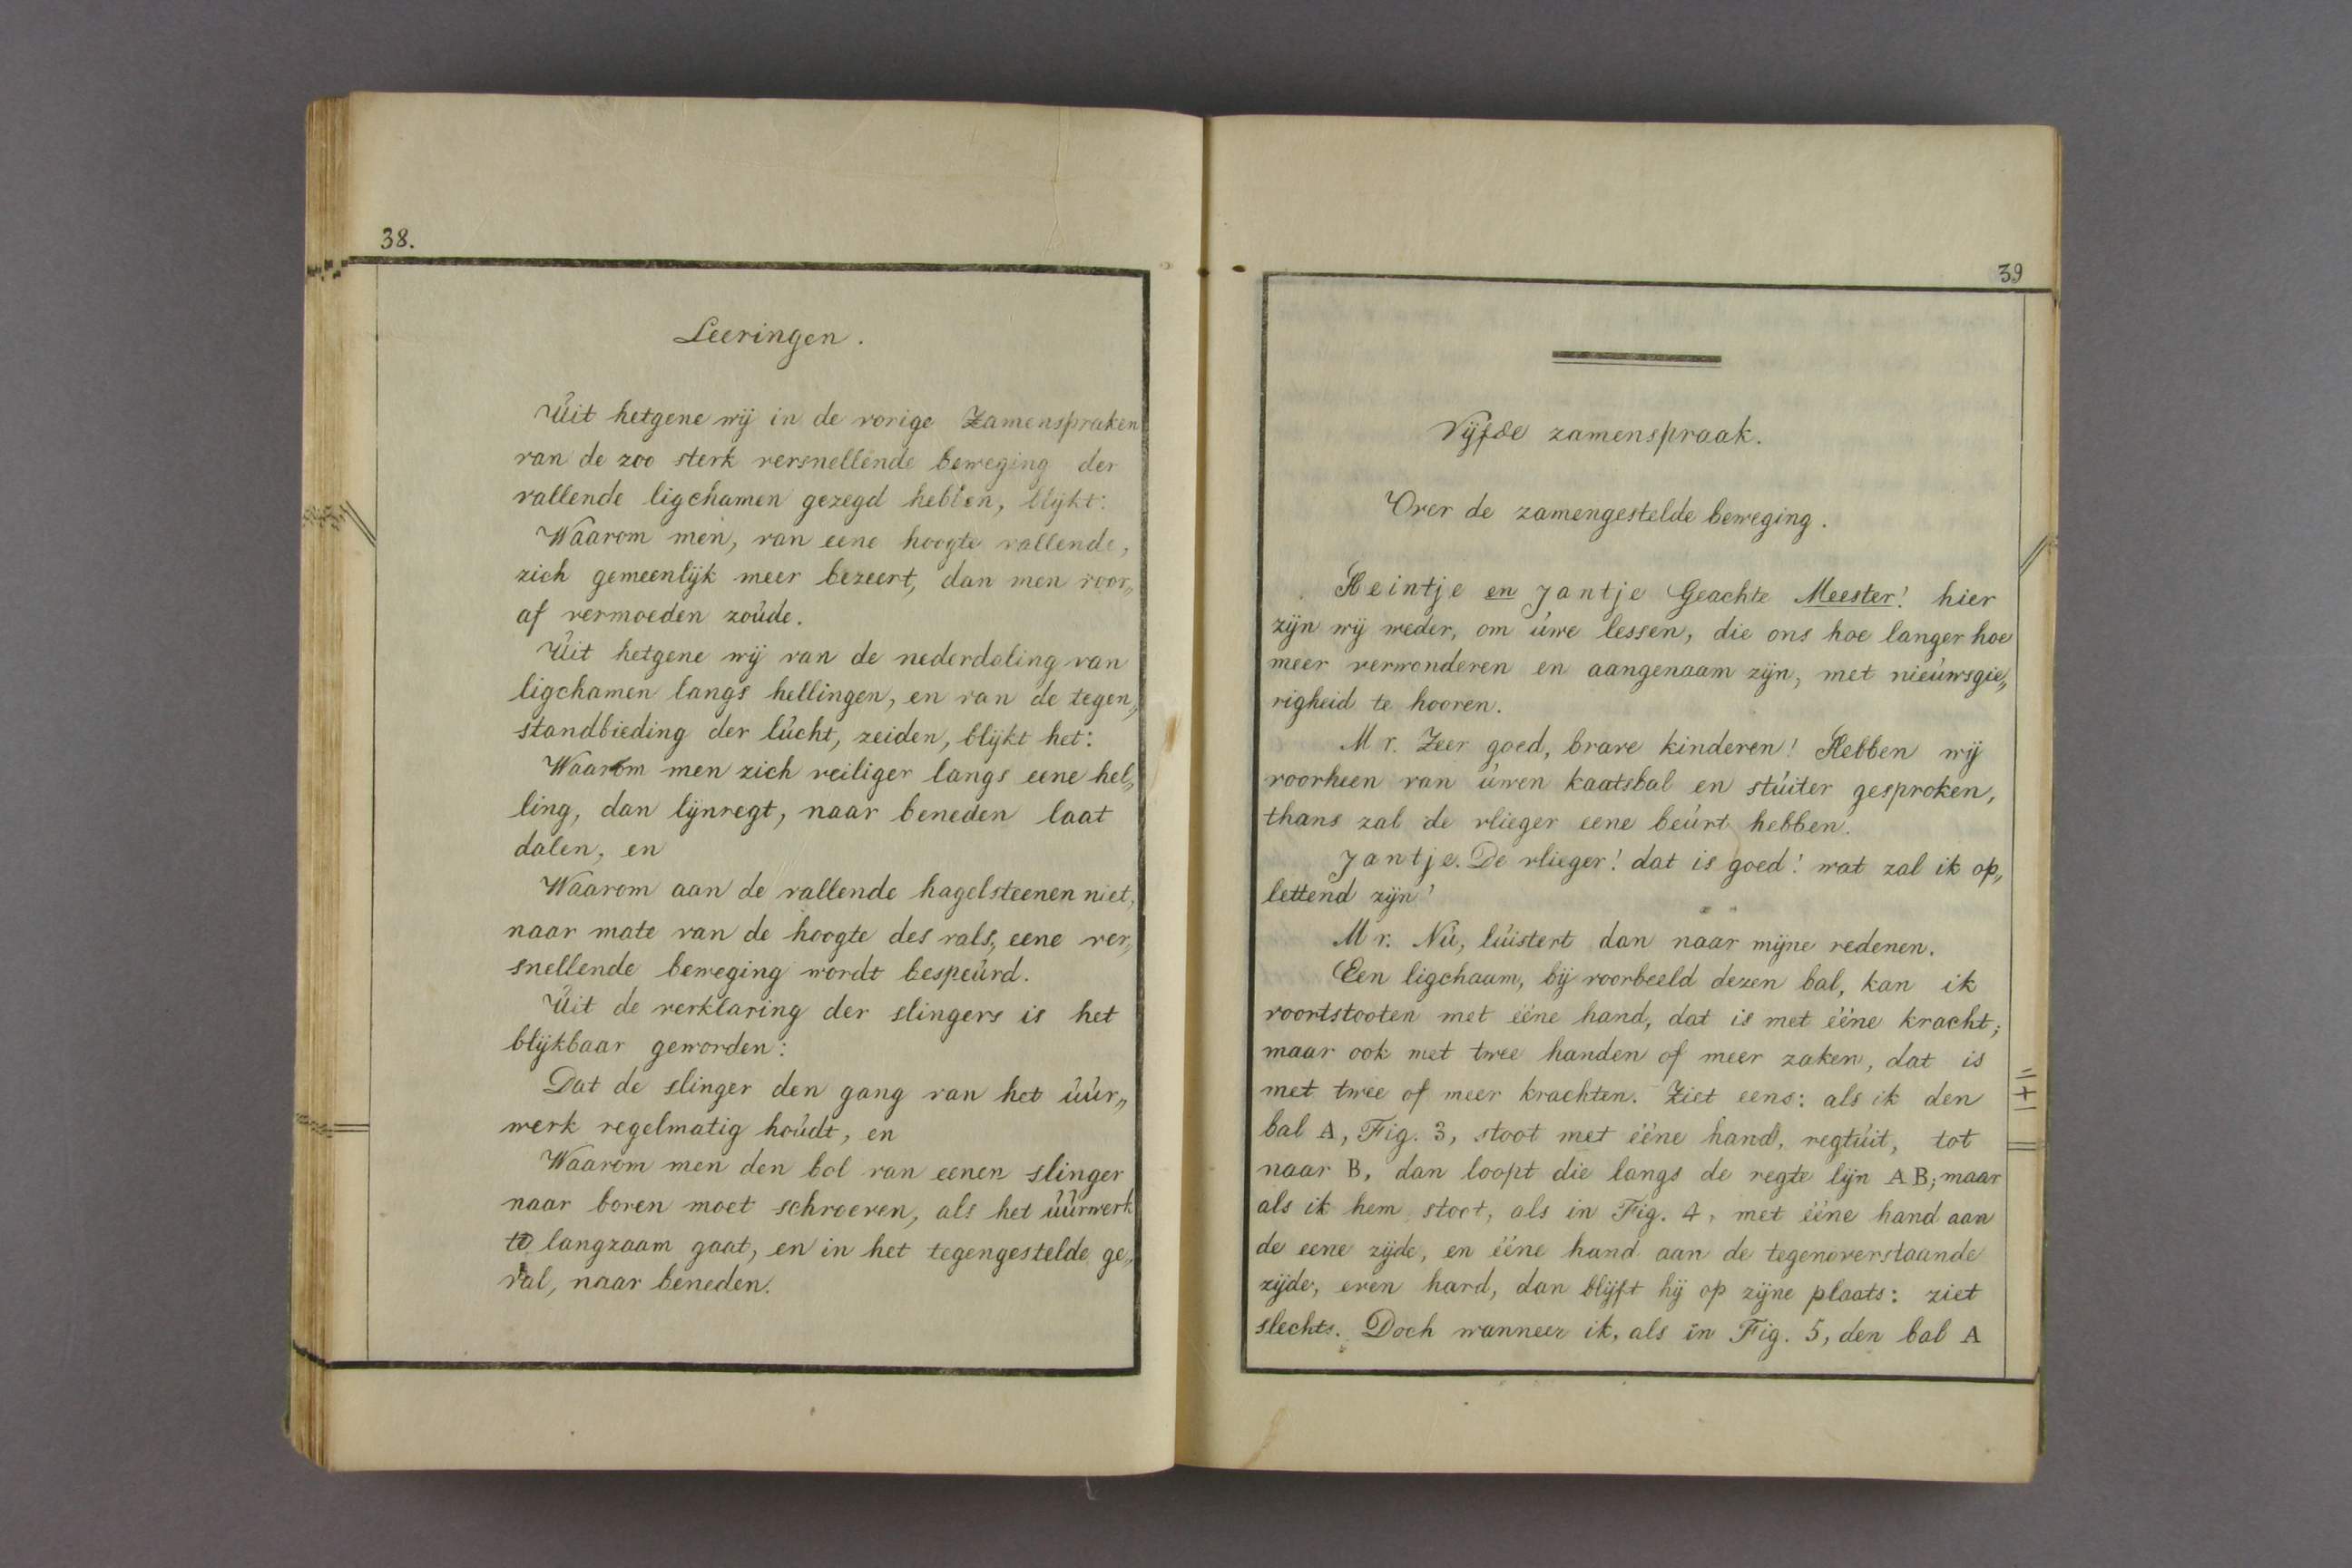 38.
Leeringen.
Uit hetgene wij in de vorige Zamenspraken
van de zoo sterk versnellende beweging der
vallende ligchamen gezegd hebben, blijkt:
Waarom men, van eene hoogte vallende,
zich gemeenlijk meer bezeert, dan men voor„
af vermoeden zoude.
Uit hetgene wij van de nederdaling van
ligchamen langs hellingen, en van de tegen„
standbieding der lucht, zeiden, blijkt het:
Waarom men zich veiliger langs eene hel„
ling, dan lijnregt, naar beneden laat
dalen, en
Waarom aan de vallende hagelsteenen niet,
naar mate van de hoogte des vals, eene ver„
snellende beweging wordt bespeurd.
Uit de verklaring der slingers is het
blijkbaar geworden:
Dat de slinger den gang van het uur„
werk regelmatig houdt, en
Waarom men den bol van eenen slinger
naar boven moet schroeven, als het uurwerk
te langzaam gaat, en in het tegengestelde ge„
val, naar beneden.
39
Vijfde zamenspraak.
Over de zamengestelde beweging.
Heintje en Jantje Geachte Meester! hier
zijn wij weder, om uwe lessen, die ons hoe langer hoe
meer verwonderen en aangenaam zijn, met nieuwsgie„
righeid te hooren.
Mr. Zeer goed, brave kinderen! Hebben wij
voorheen van uwen kaatsbal en stuiter gesproken,
thans zal de vlieger eene beurt hebben.
Jantje. De vlieger! dat is goed! wat zal ik op„
lettend zijn!
Mr. Nu, luistert dan naar mijne redenen.
Een ligchaam, bij voorbeeld dezen bal, kan ik
voortstooten met ééne hand, dat is met ééne kracht;
maar ook met twee handen of meer zaken, dat is
met twee of meer krachten. Ziet eens: als ik den
bal A, Fig. 3, stoot met ééne hand, regtuit, tot
naar B, dan loopt die langs de regte lijn AB; maar
als ik hem stoot, als in Fig. 4, met ééne hand aan
de eene zijde, en ééne hand aan de tegenoverstaande
zijde, even hard, dan blijft hij op zijne plaats: ziet
slechts. Doch wanneer ik, als in Fig. 5, den bal A